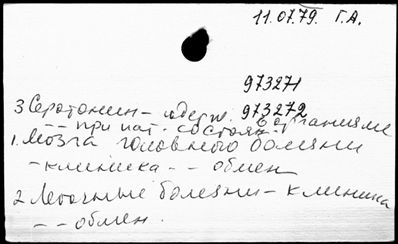 11.07.79. Г.А.
973271
3 Серотонин – содерж. 973272 в организме
– – при пат. состоян.
1. Мозга головного болезни
– клиника – – обмен
2. Легочные болезни – клиника
– – обмен.